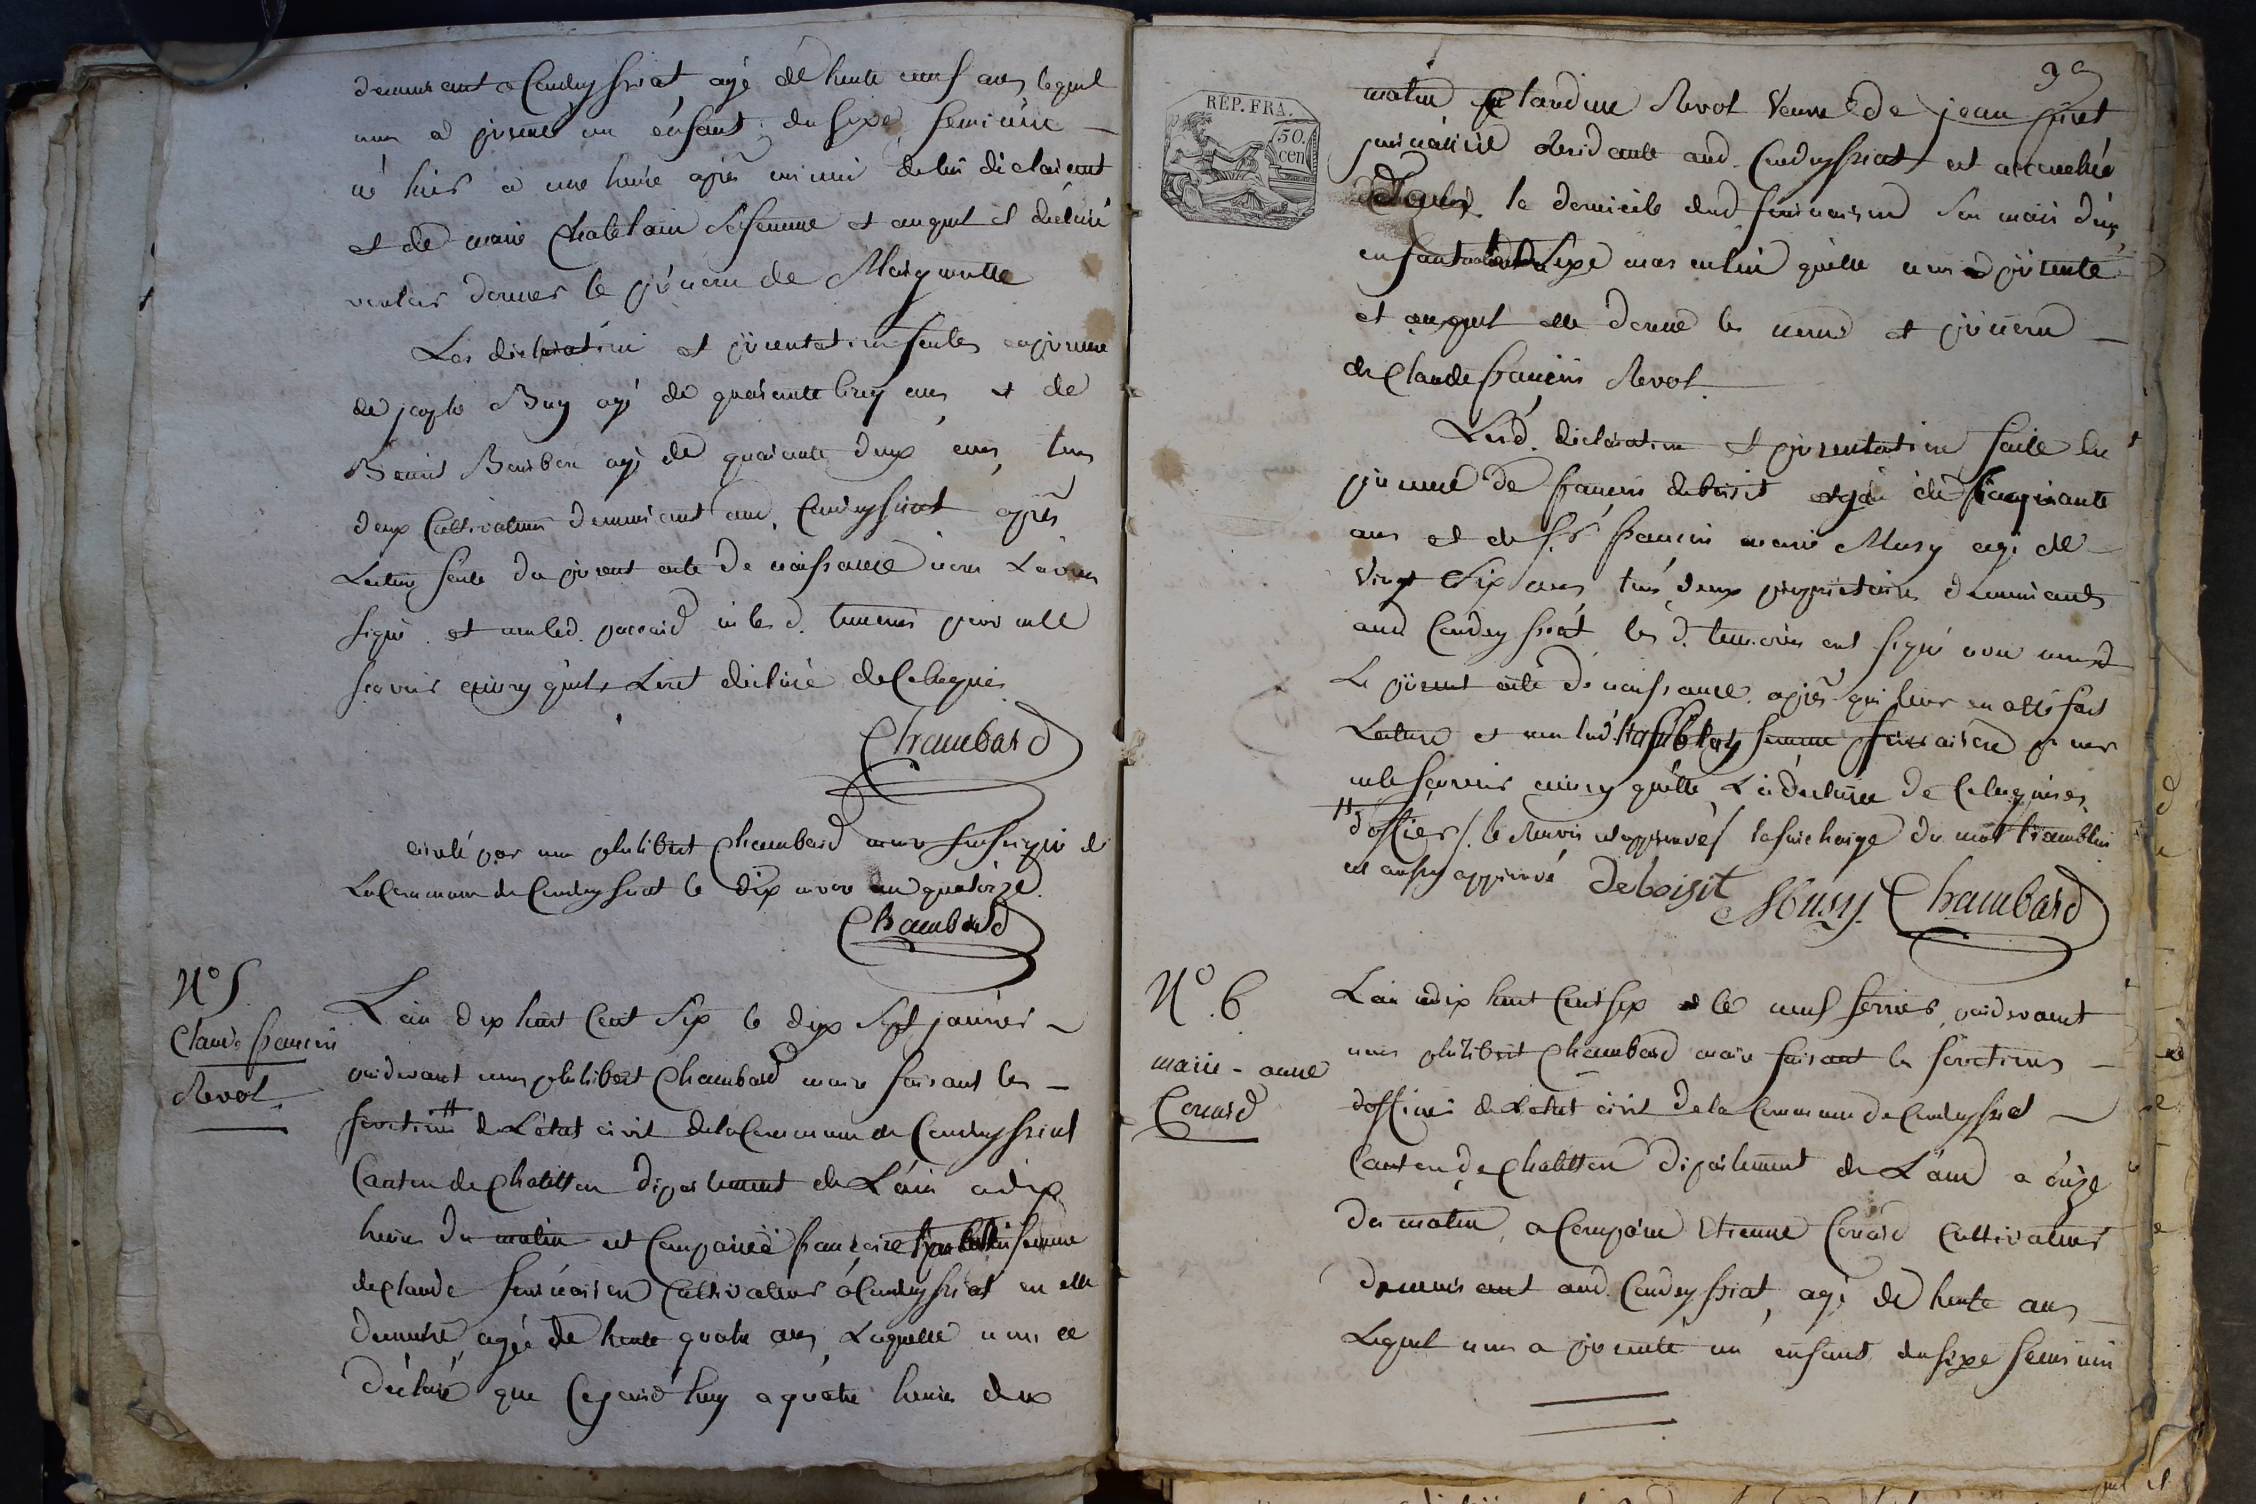 demeurant a Condeyssiat agé de trente neuf ans lequel
nous a presenté un enfant du sexe feminin
né hier a une heure après midi de lui déclarant
et de marie Chatelain sa femme et auquel il a déclaré
vouloir donner le prénom de Marguerite
Les declaration et presentation faites en presence
de joseph Buy agé de quarante cinq ans et de
Benoit Bourbon agé de quarante deux ans, tous
deux Cultivateurs demeurant aud. Condeyssiat après
Lecture faite du present acte de naissance nous L'avons
signé et non led. ni les d. temoins pour ne le
scavoir ainsy qu'ils L'ont déclaré de Ce Requis
Chambard
arrêté par nous philibert Chambard maire soussigné de
La Commune de Condeyssiat le dix nivose an quatorze.
Chambard
N° 5
Claude françois
Revol.
L'an dix huit Cent Six le dix Sept janvier
pardevant nous philibert Chambard maire faisant les
fonctions # de L'état civil de la Commune de Condeyssiat
Canton de Chatillon département de L'ain a dix
heures du matin est Comparüe françoise tramblai femme
de Claude Cultivateur a Condeyssiat ou elle
demeure, agée de trente quatre ans, Laquelle nous a
déclaré que Cejourd'huy a quatre heures du
39
REP. FRA.
50.
cen
matin Claudine Revol Veuve de jean
residante aud. Condeyssiat est accouchée
le domicile dud. son mari d'un
enfant du Sexe masculin qu'elle nous a presenté
et auquel elle donne les noms et prénom
de Claude françois Revol.
Lesd. déclaration et presentation faite en
presence de françois deboisit agé de Cinquante
ans et de Sr. françois marie Musy agé de
Vingt Six ans tous deux propriétaires demeurants
aud. Condeyssiat les d. temoins ont signé avec nous
Le present acte de naissance après que leur en a été fait
Lecture et non lad. tramblay femme pour ne
le sçavoir ainsy qu'elle L'a déclaré de Ce Requise.
# d'officier /. le Renvoi est approuvé / la surcharge du mot tramblai
est aussy approuvé Deboisit Musy. Chambard
N° 6
marie - anne
Convard
L'an dix huit Cent Six et le neuf fevrier, pardevant
nous philibert Chambard maire faisant les fonctions
d'officier de L'état civil de la Commune de Condeyssiat
Canton de Chatillon département de L'ain a onze
du matin, a Comparu Etienne Convard Cultivateur
demeurant aud. Condeyssiat, agé de trente ans
Lequel nous a presenté un enfant du sexe feminin